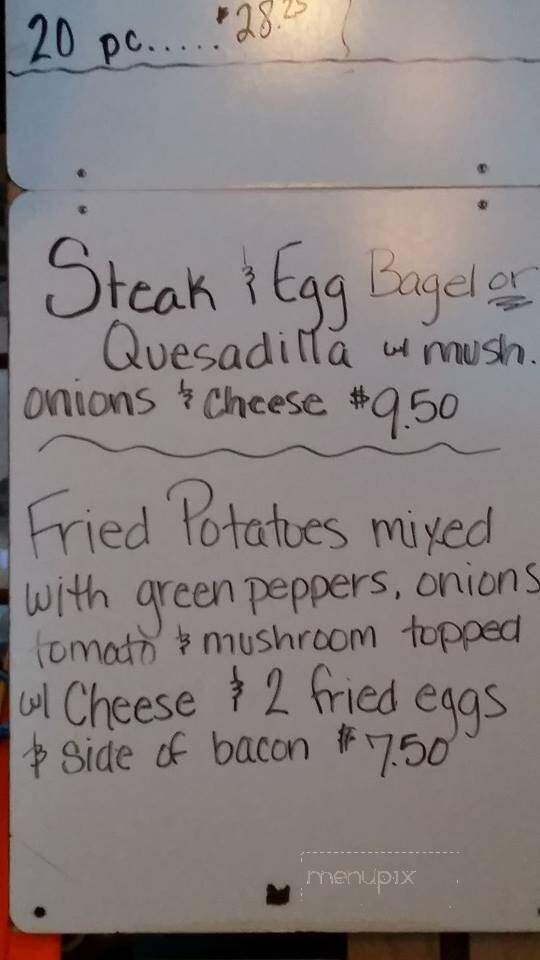 20 pc..... $28.25
Steak & Egg Bagel or
Quesadilla w/ mush.
onions & cheese $9.50
Fried Potatoes mixed
with green peppers, onions
tomato & mushroom topped
w/ Cheese & 2 fried eggs
& side of bacon $7.50
menupix